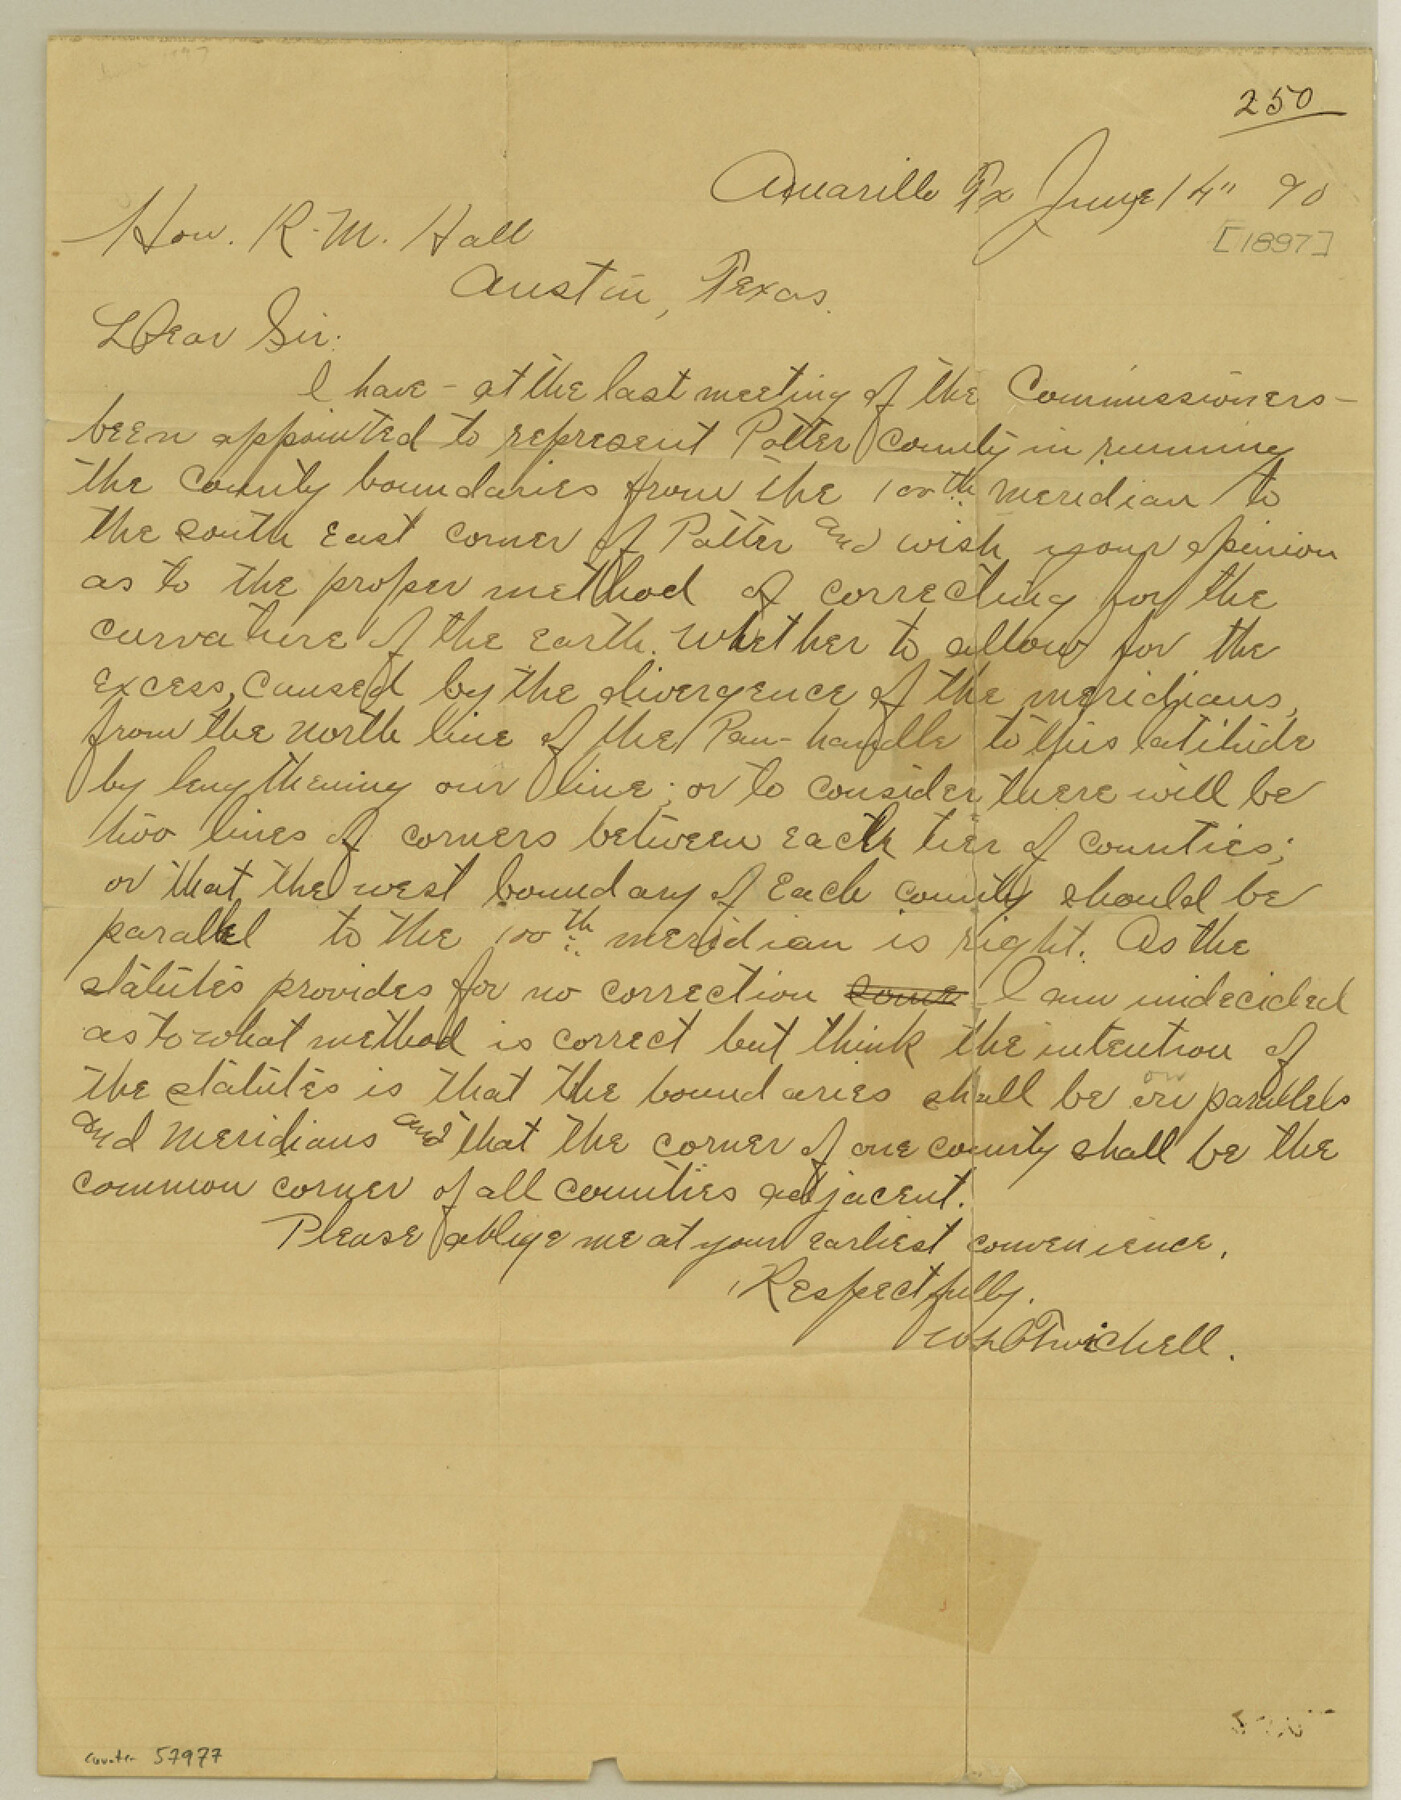 250
Amarillo Tx June 14" 90
[1897]
Hon. R. M. Hall
Austin, Texas.
Dear Sir:
I have - at the last meeting of the Commissioners -
been appointed to represent Potter County in running
the County boundaries from the 100th meridian to
the south East corner of Potter and wish your opinion
as to the proper method of correcting for the
curvature of the Earth. Whether to allow for the
excess, caused by the divergence of the meridians,
from the north line of the Pan-handle to this latitude
by lengthening our line; or to consider there will be
two lines of corners between each tier of counties;
or that the west boundary of Each county should be
parallel to the 100th meridian is right. As the
statutes provides for no correction some I am undecided
as to what method is correct but think the intention of
the statutes is that the boundaries shall be on parallels
and meridians and that the corner of one county shall be the
common corner of all counties adjacent.
Please oblige me at your earliest convenience.
Respectfully.
W D Twichell.
counter 57977